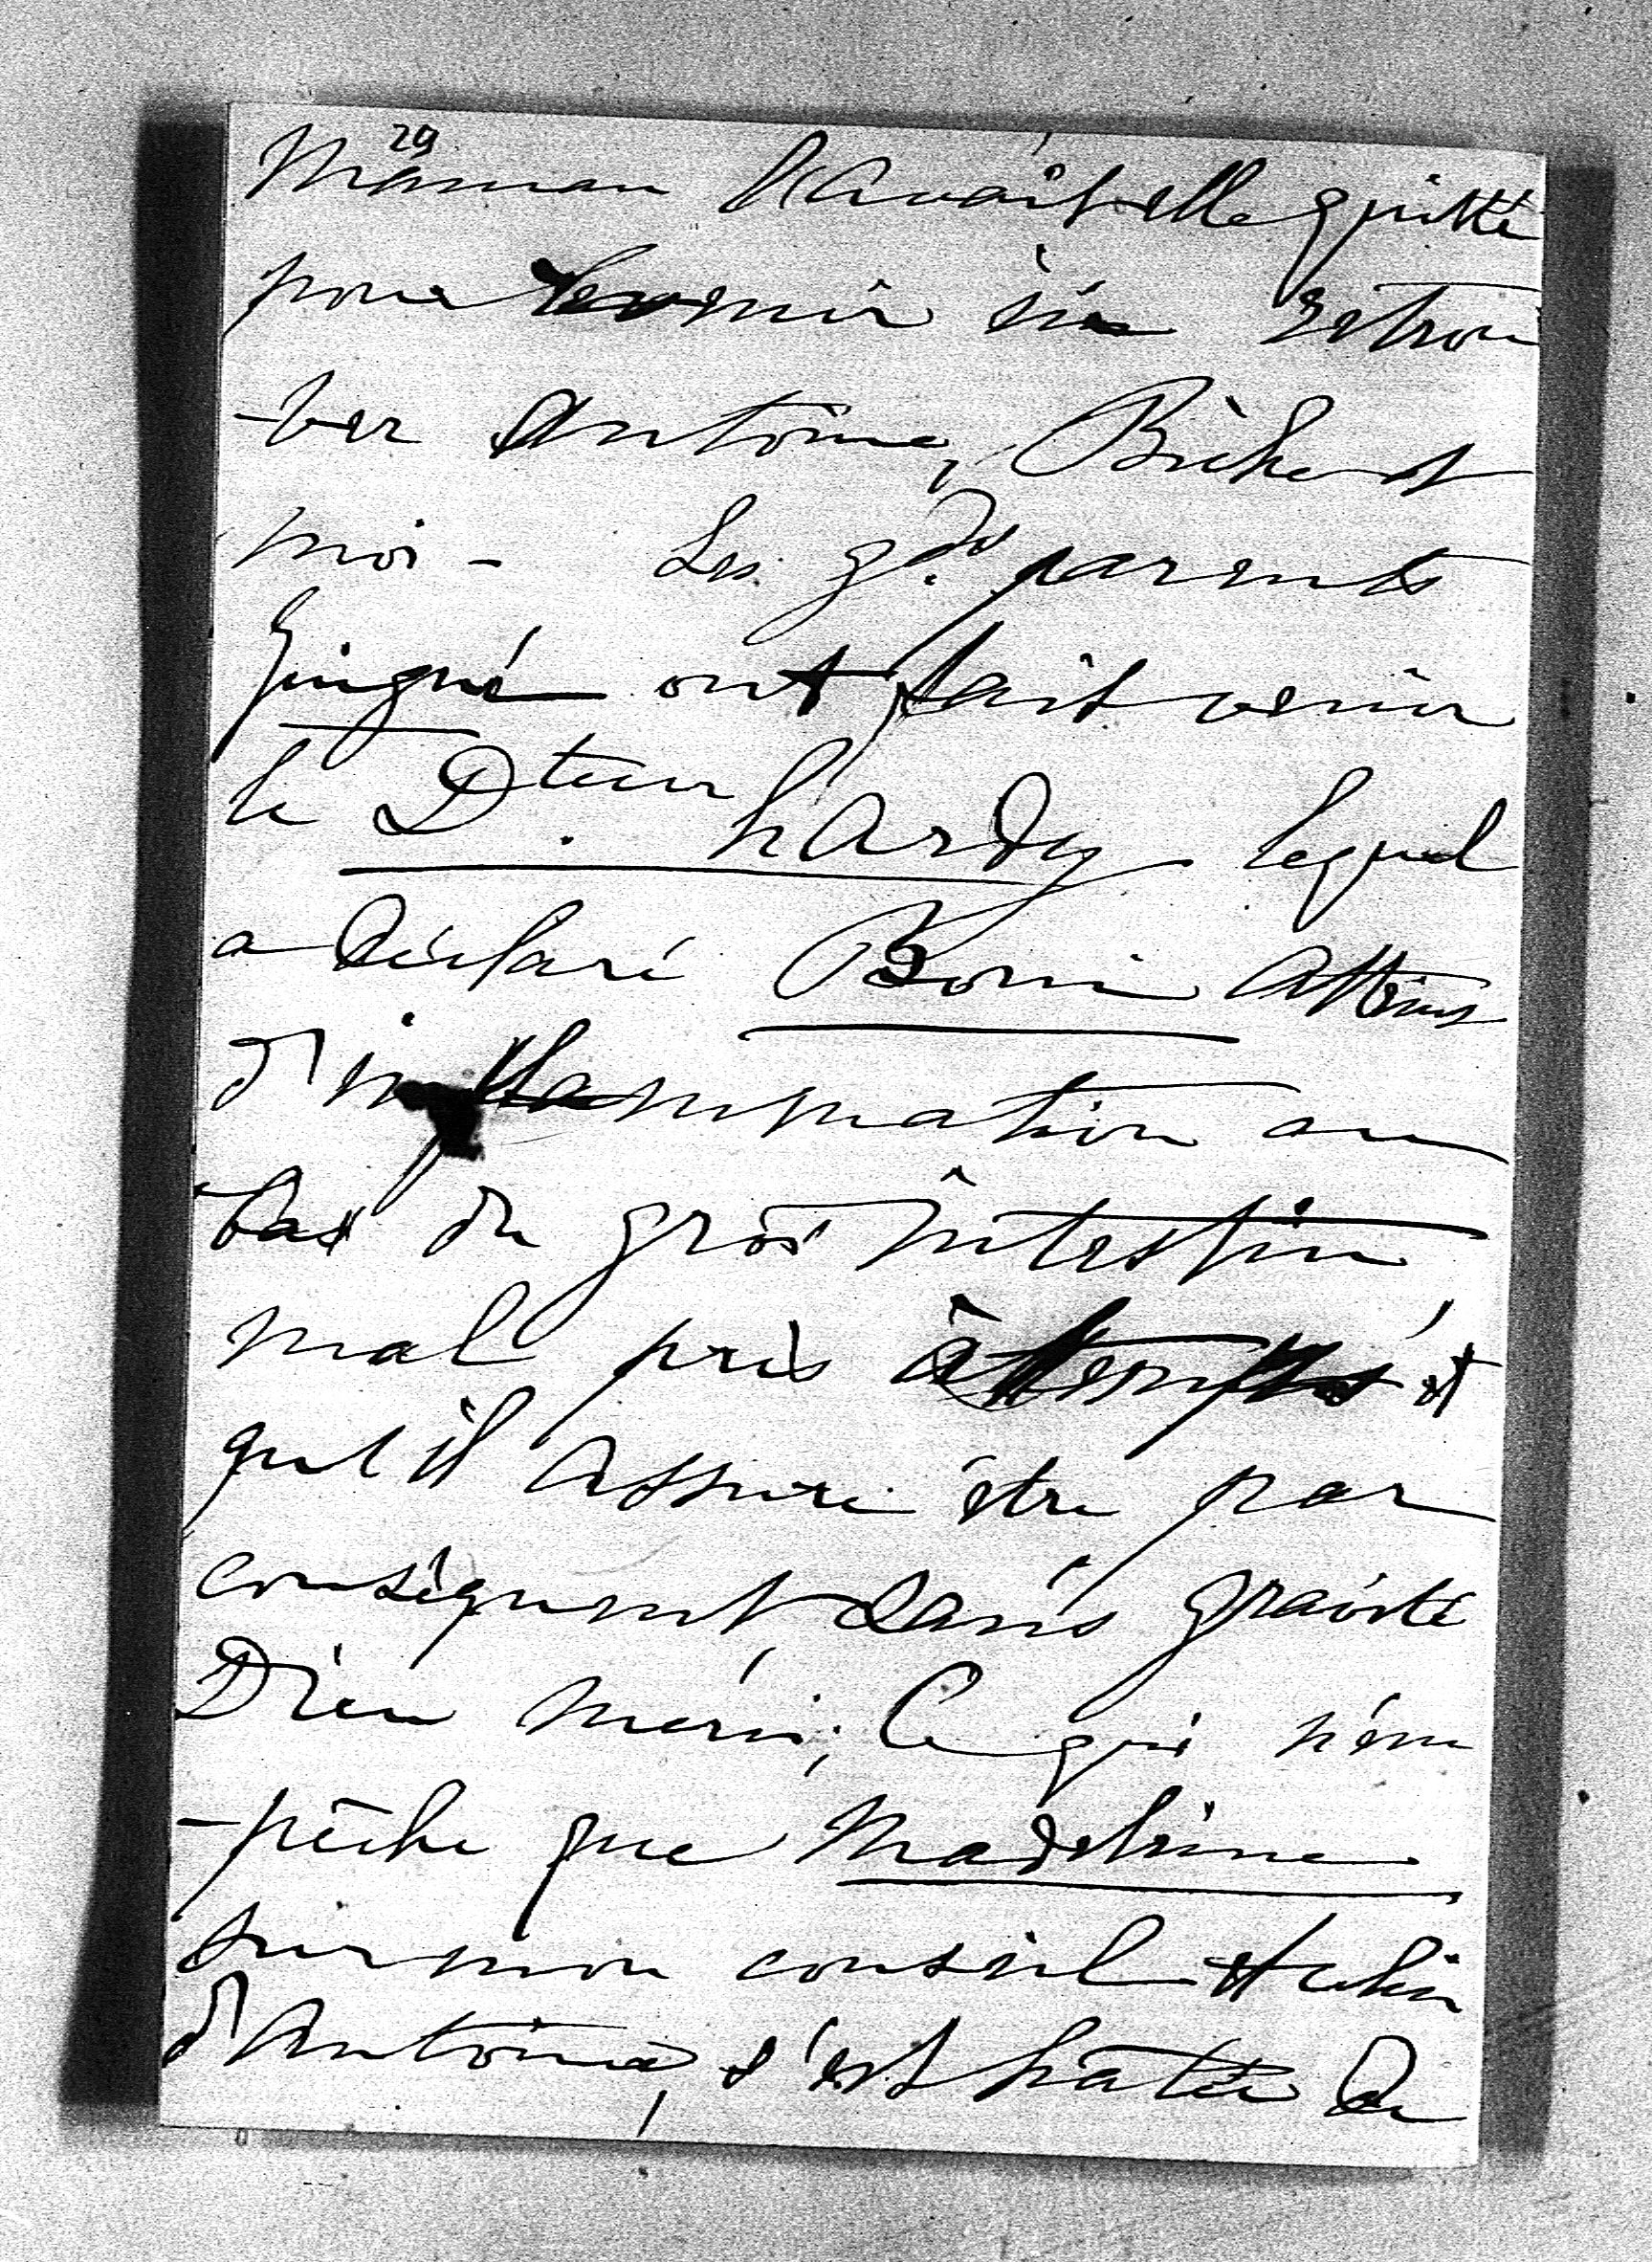 29
Maman l'avait elle quitté
pour revenir ici retrou
-ver Antoine, Biche et
moi - Les gds parents
Guigné ont fait venir
le Dteur hardy lequel
a déclaré Boni atteint
d'inflammation au
bas du gros intestin
mal pris à temps et
qu'il assure être par
conséquent sans gravité
Dieu merci; Ce qui n'em
-pêche que Madeleine
sur mon conseil et celui
d'Antoine, s'est hâtée de